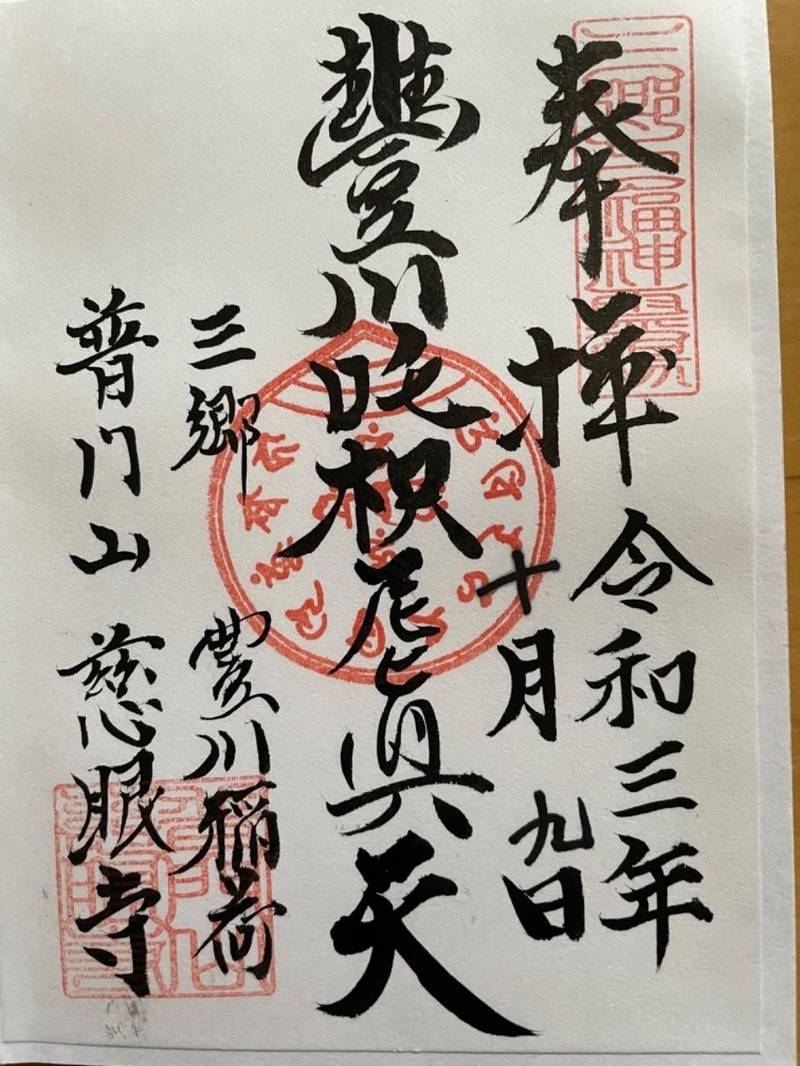 奉拝
令和三年
十月九日
豐川吒枳尼眞天
三郷 豊川稲荷
普門山 慈眼寺